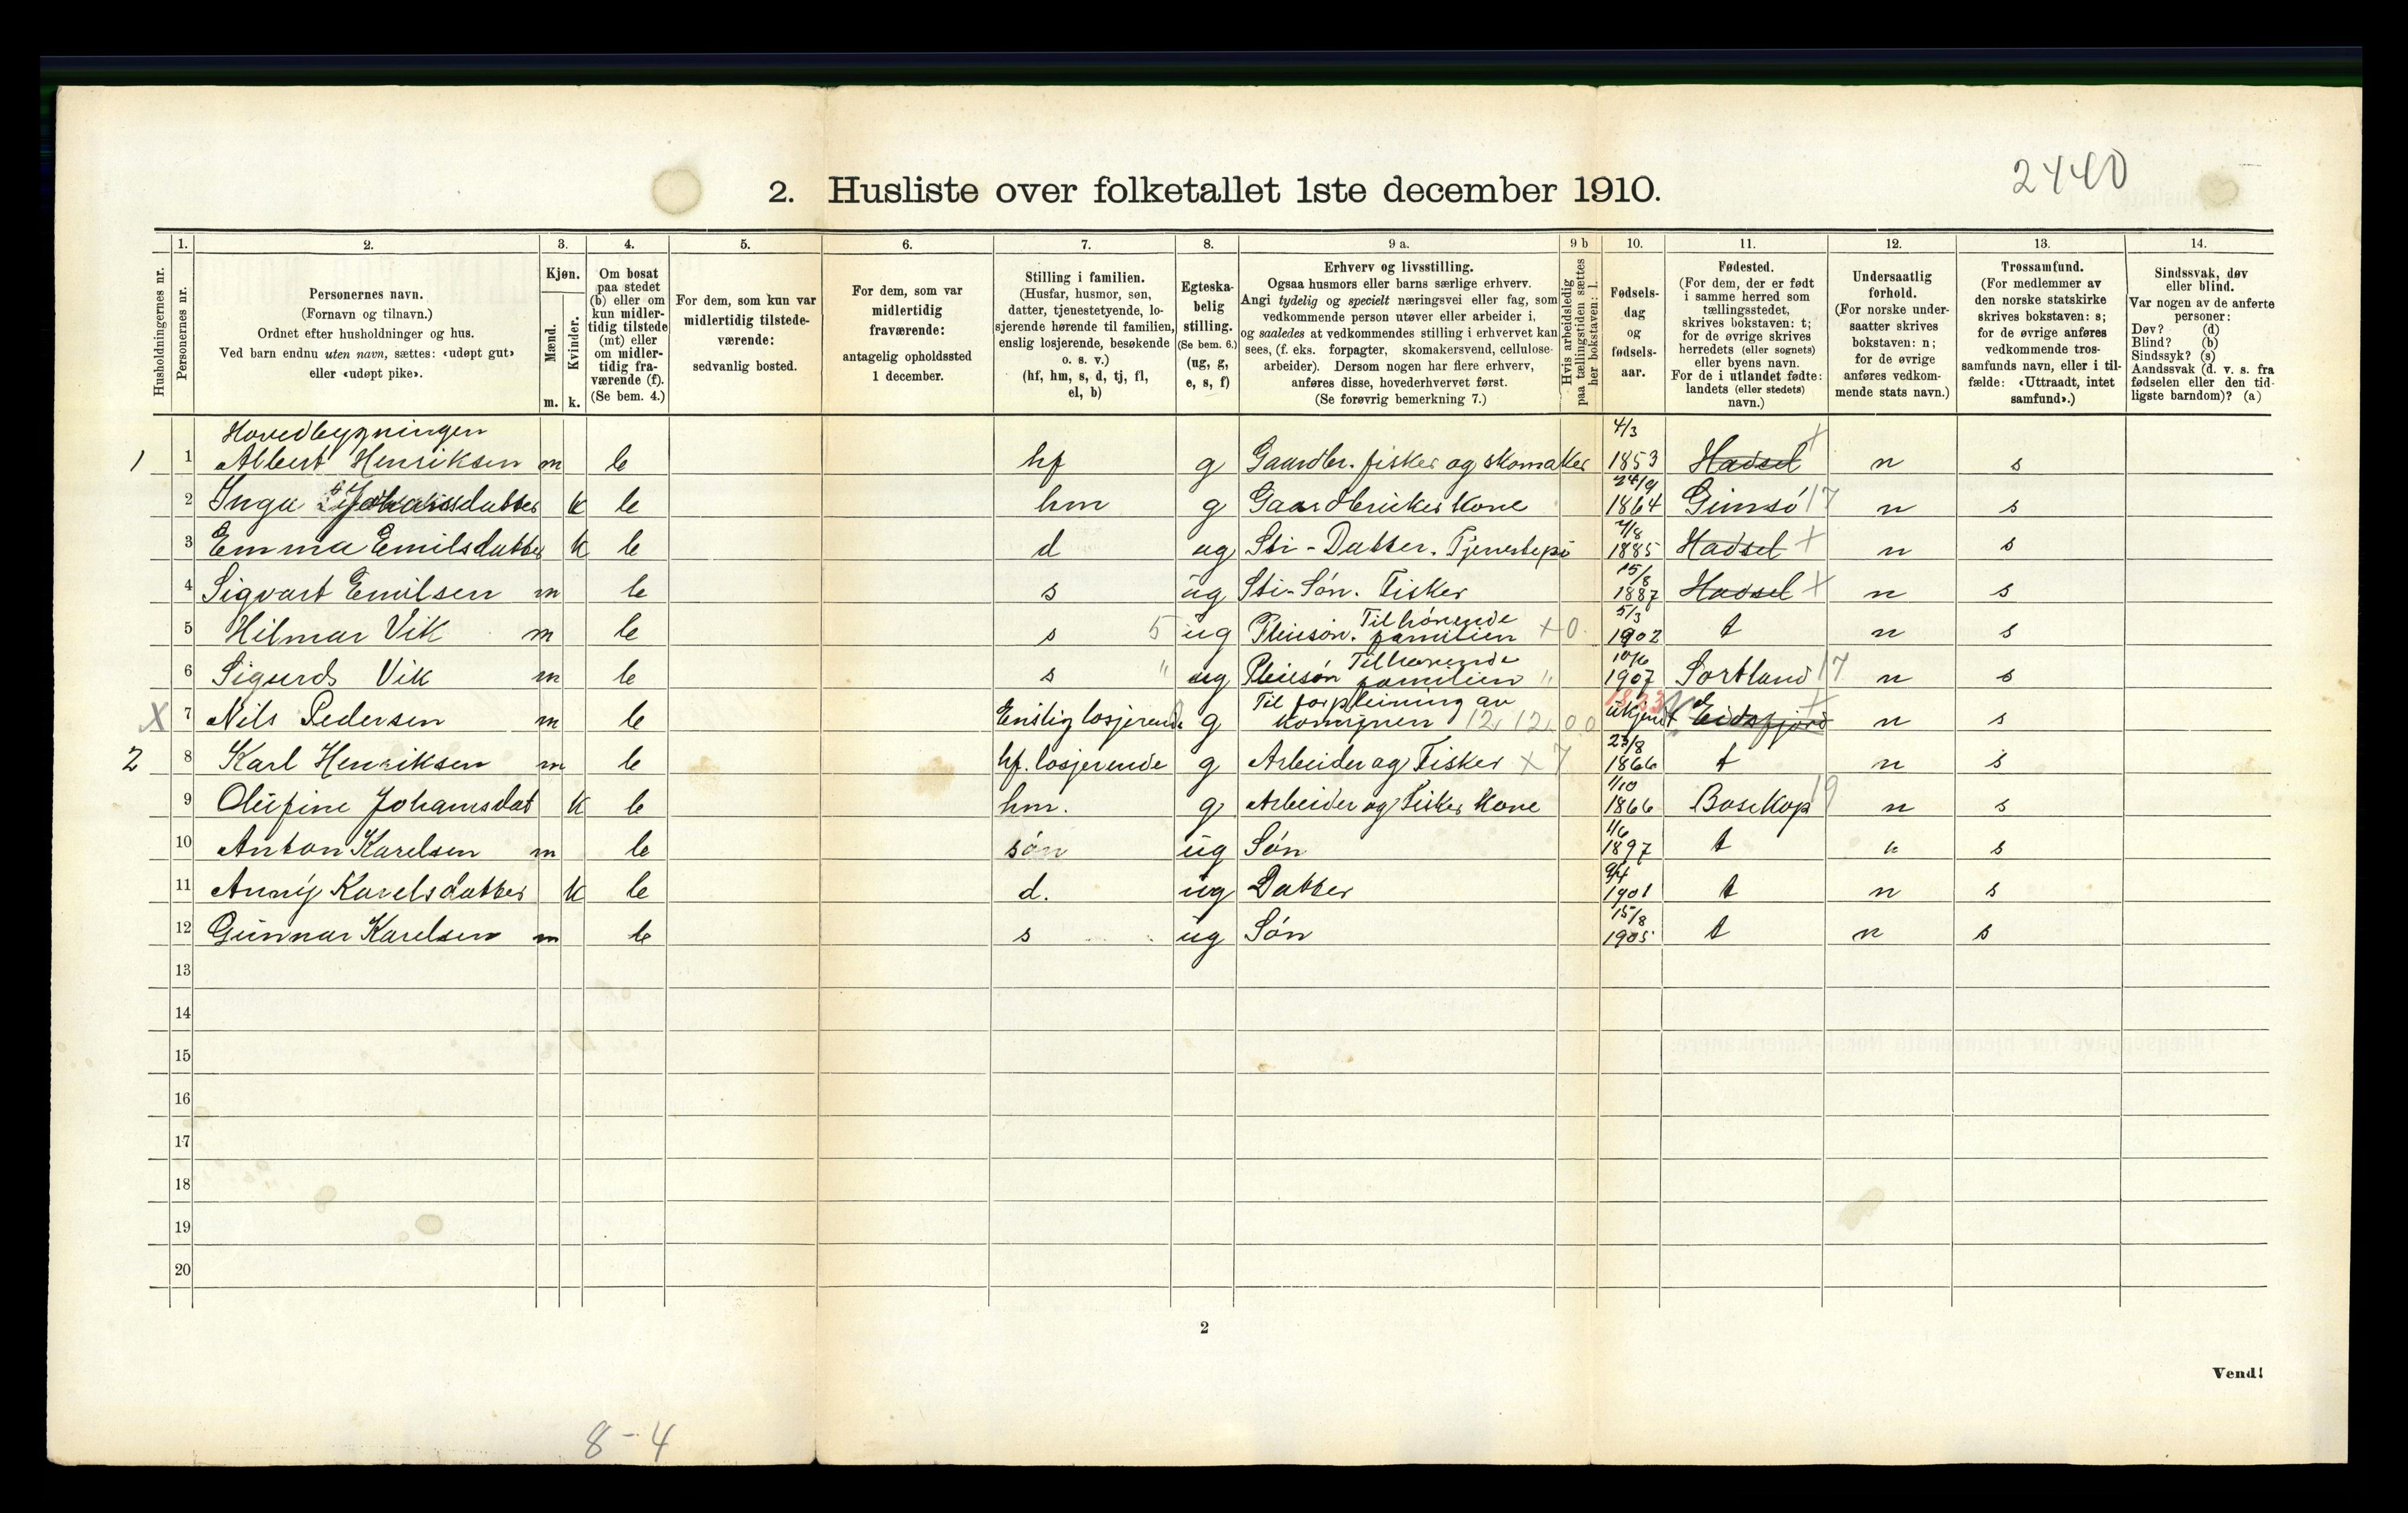 2440
2. Husliste over folketallet 1ste december 1910.
Husholdningernes nr.
1.
Personernes nr.
2.
Personernes navn.
(Fornavn og tilnavn.)
Ordnet efter husholdninger og hus.
Ved barn endnu uten navn, sættes: «udøpt gut»
eller «udøpt pike».
3.
Kjøn.
Mænd.
Kvinder.
m. k.
4.
Om bosat
paa stedet
(b) eller om
kun midler-
tidig tilstede
(mt) eller
om midler-
tidig fra-
værende (f).
(Se bem. 4.)
5.
For dem, som kun var
midlertidig tilstede-
værende:
sedvanlig bosted.
6.
For dem, som var
midlertidig
fraværende:
antagelig opholdssted
1 december.
7.
Stilling i familien.
(Husfar, husmor, søn,
datter, tjenestetyende, lo-
sjerende hørende til familien,
enslig losjerende, besøkende
o. s. v.)
(hf, hm, s, d, tj, fl,
el, b)
8.
Egteska-
belig
stilling.
(Se bem. 6.)
(ug, g,
e, s, f)
9 a.
Erhverv og livsstilling.
Ogsaa husmors eller barns særlige erhverv.
Angi tydelig og specielt næringsvei eller fag, som
vedkommende person utøver eller arbeider i,
og saaledes at vedkommendes stilling i erhvervet kan
sees, (f. eks. forpagter, skomakersvend, cellulose-
arbeider). Dersom nogen har flere erhverv,
anføres disse, hovederhvervet først.
(Se forøvrig bemerkning 7.)
9 b
Hvis arbeidsledig
paa tællingstiden sættes
her bokstaven: l.
10.
Fødsels-
dag
og
fødsels-
aar.
11.
Fødested.
(For dem, der er født
i samme herred som
tællingsstedet,
skrives bokstaven: t;
for de øvrige skrives
herredets (eller sognets)
eller byens navn.
For de i utlandet fødte:
landets (eller stedets)
navn.)
12.
Undersaatlig
forhold.
(For norske under-
saatter skrives
bokstaven: n;
for de øvrige
anføres vedkom-
mende stats navn.)
13.
Trossamfund.
(For medlemmer av
den norske statskirke
skrives bokstaven: s;
for de øvrige anføres
vedkommende tros-
samfunds navn, eller i til-
fælde: «Uttraadt, intet
samfund».)
14.
Sindssvak, døv
eller blind.
Var nogen av de anførte
personer:
Døv? (d)
Blind? (b)
Sindssyk? (s)
Aandssvak (d. v. s. fra
fødselen eller den tid-
ligste barndom)? (a)
Hovedbygningen
1 1 Albert Henriksen m b hf g Gaardbr. fisker og skomaker 4/3 1853 Hadsel n s
2 Inga Johansdatter k b hm g Gaardbruker kone 24/9 1864 Gimsö 17 n s
3 Emma Emilsdatter k b d ug Sti-Datter. Tjenestepi 7/8 1885 Hadsel n s
4 Sigvart Emilsen m b s ug Sti-Søn. Fisker 15/8 1887 Hadsel n s
5 Hilmar Vik m b s 5 ug Pleiesøn. Tilhørende familien 0 5/3 1902 t n s
6 Sigurd Vik m b s " ug Pleiesøn Tilhørende familien " 10/6 1907 Sortland 17 n s
X 7 Nils Pedersen m b Enslig losjerende g Til forpleining av kommunen 12, 12, 0 0 ukjent Eidsfjord n s
2 8 Karl Henriksen m b hf. losjerende g Arbeider og Fisker X 7 23/8 1866 t n s
9 Olufine Johansdat k b hm. g Arbeider og Fisker kone 1/10 1866 Bosekop 19 n s
10 Anton Karelsen m b søn ug Søn 1/6 1897 t n s
11 Anny Karelsdatter k b d. ug Datter 9/4 1901 t n s
12 Gunnar Karelsen m b s ug Søn 15/8 1905 t n s
13
14
15
16
17
18
19
20
2
Vend!
8-4